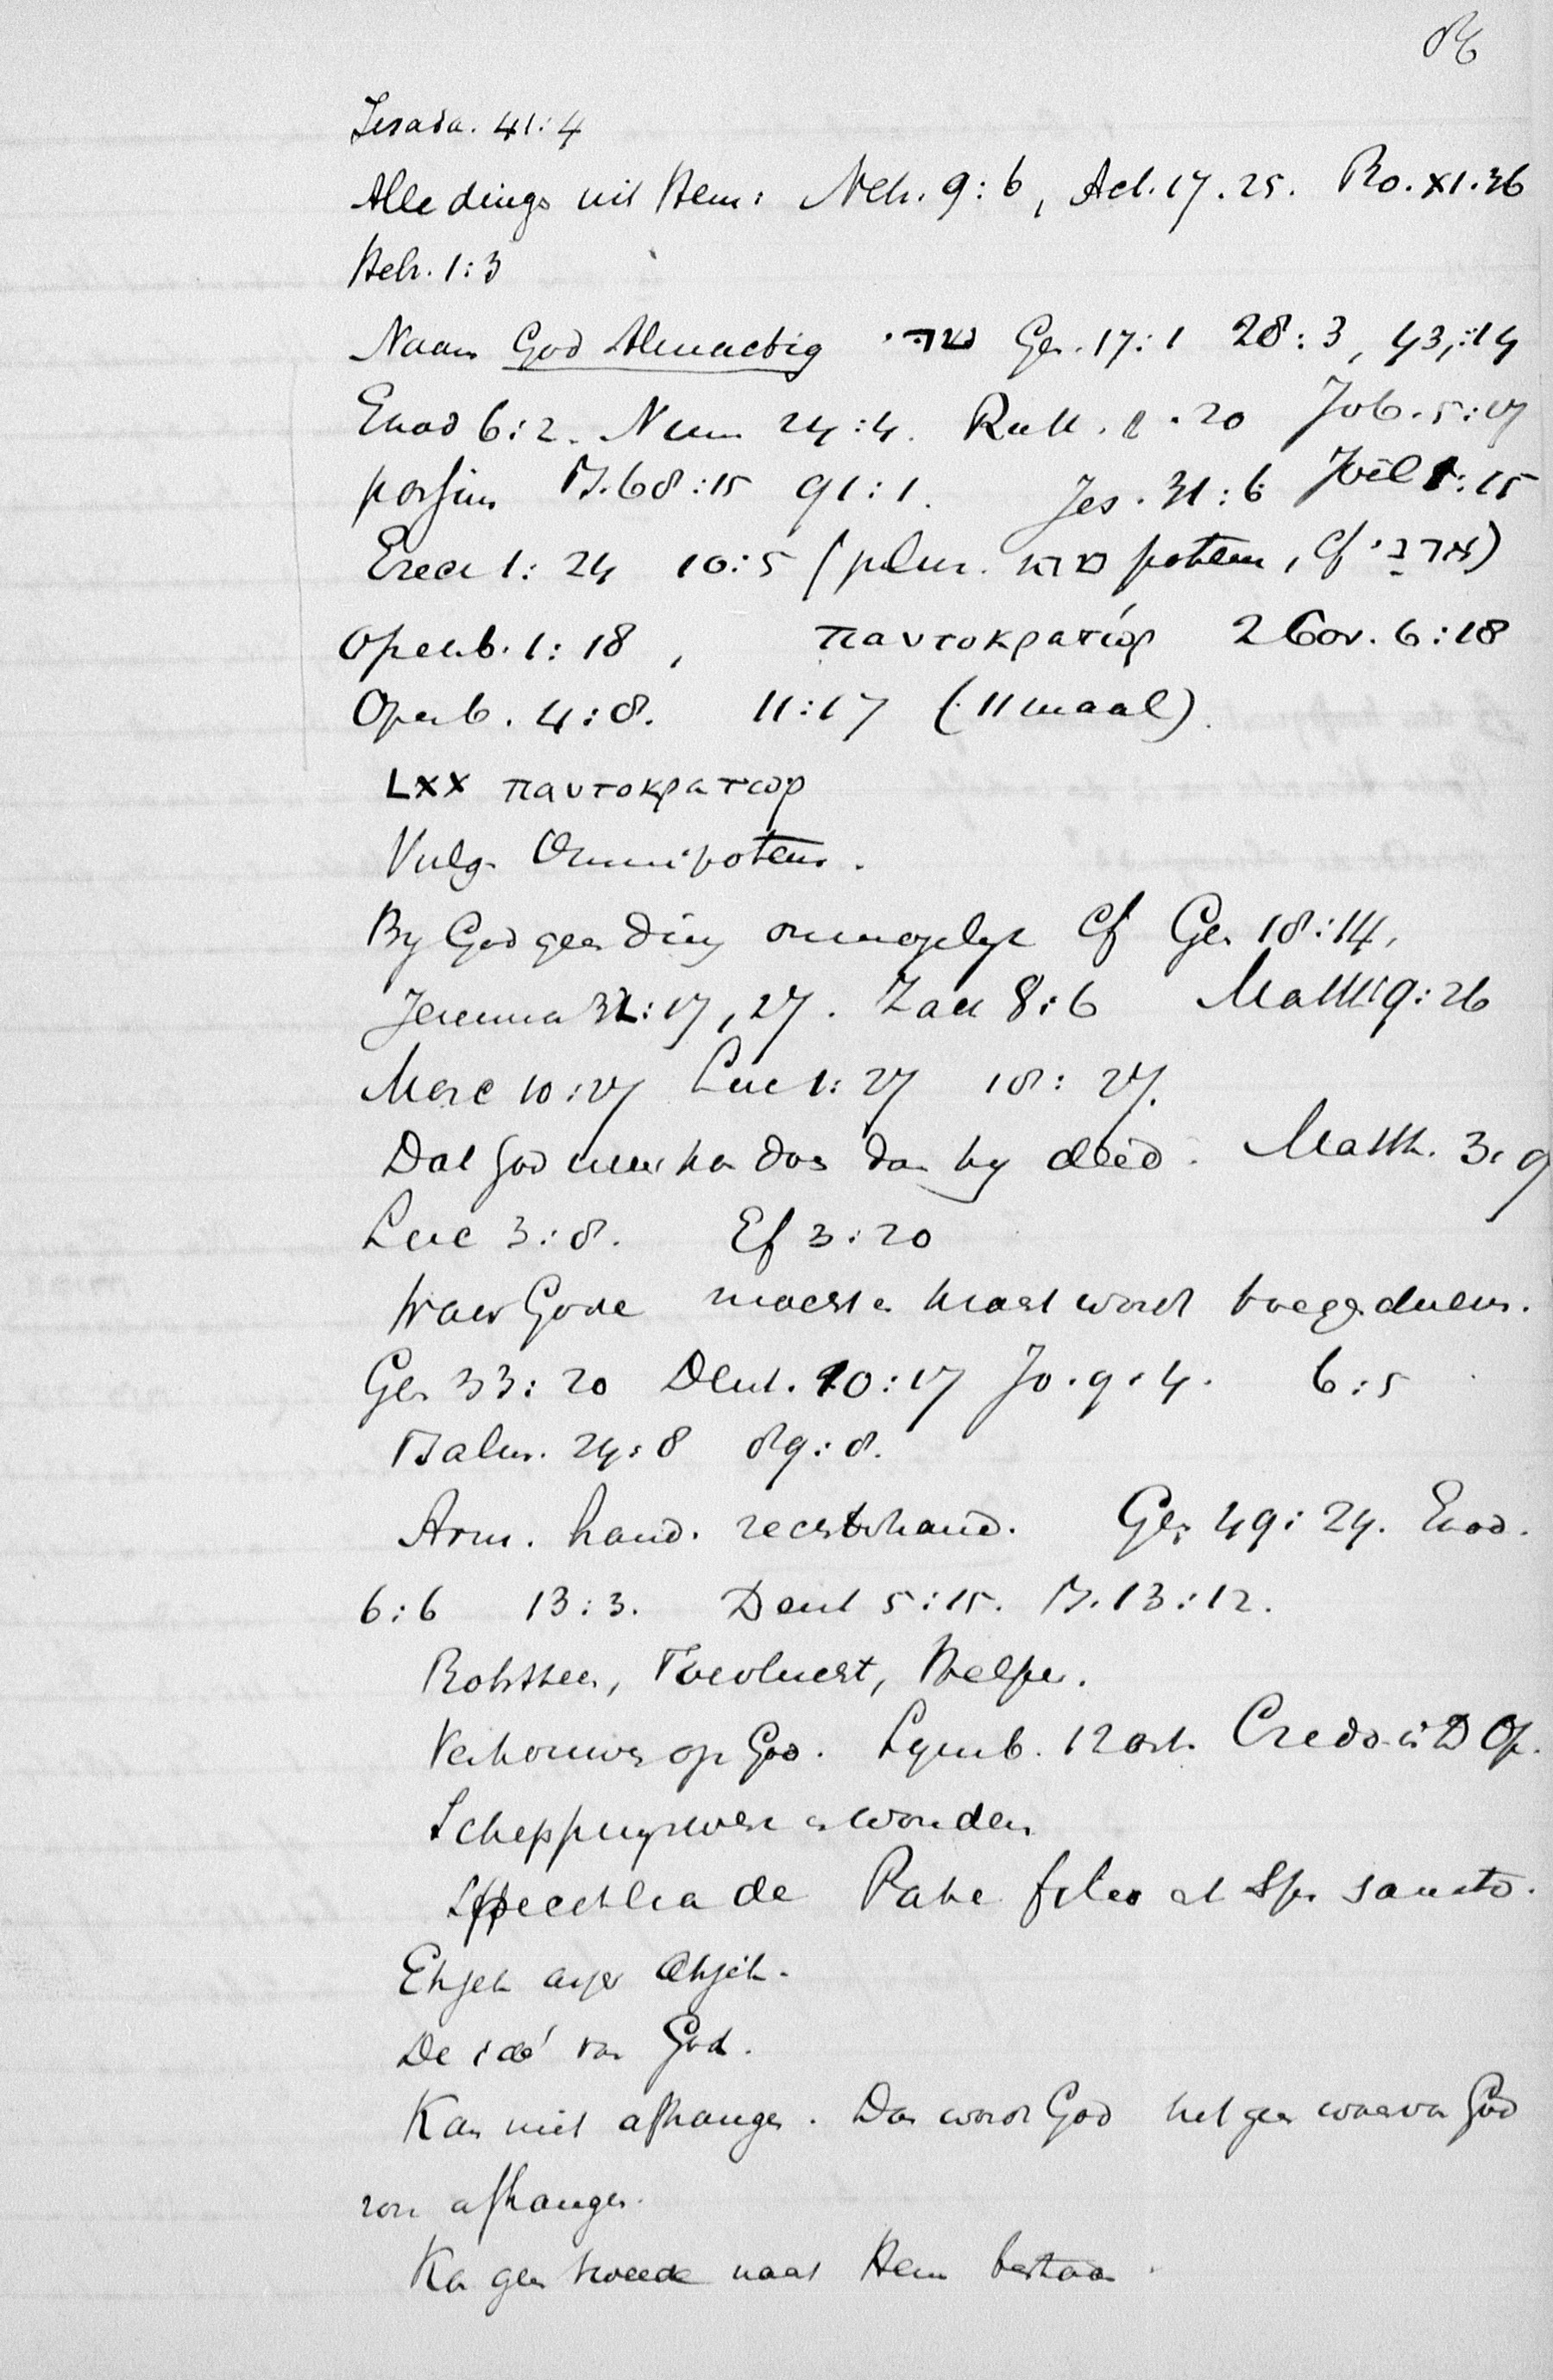 Jesaia. 41:4
Alle dings uit Hem: Neh. 9:6, Act. 17.25. Ro. XI.36
Hebr. 1:3
Naam God Almachtig שדי Ge. 17:1 28:3, 43:14
Exod 6:2. Num 24:4. Ruth. 1.20 Job. 5:17
passim Ps. 68:15 91:1. Jes. 31:6 Joël 1:15
Ezech 1:24 10:5 (plur. potens, Cf אדני)
Openb. 1:18, παντοκρατώρ 2 Cor. 6:18
Openb. 4:8. 11:17 (11 maal).
LXX παντοκρατωρ
Vulg. Omnipotens.
By God geen ding onmogelyk Cf Gen 18:14,
Jeremia 32:17, 27. Zach 8:6 Matth 19:26
Marc 10:27 Luc 1:27 18:27.
Dat God meer kan doen dan hy deed. Matth. 3:9
Luc 3:8. Ef 3:20
Waar Gode macht en kracht wordt toegeschreven.
Gen 33:20 Deut. 10:17 Jo. 9:4. 6:5
Psalm. 24:8 89:8.
Arm. hand. rechterhand. Gen 49:24. Exod.
6:6 13:3. Deut 5:15. Ps. 13:12.
Rotssteen, Toevlucht, Helper.
Vertrouwen op God. Symb. 12 art. Credo in D Op.
Scheppingswerk en wonderen
Specthea de Patre filio et Sp. sancto.
Ehjeh asjer Ehjeh.
De idé van God.
Kan niet afhangen. Dan wordt God hetgeen waarvan God
zou afhangen.
Kan geen tweede naast Hem bestaan.